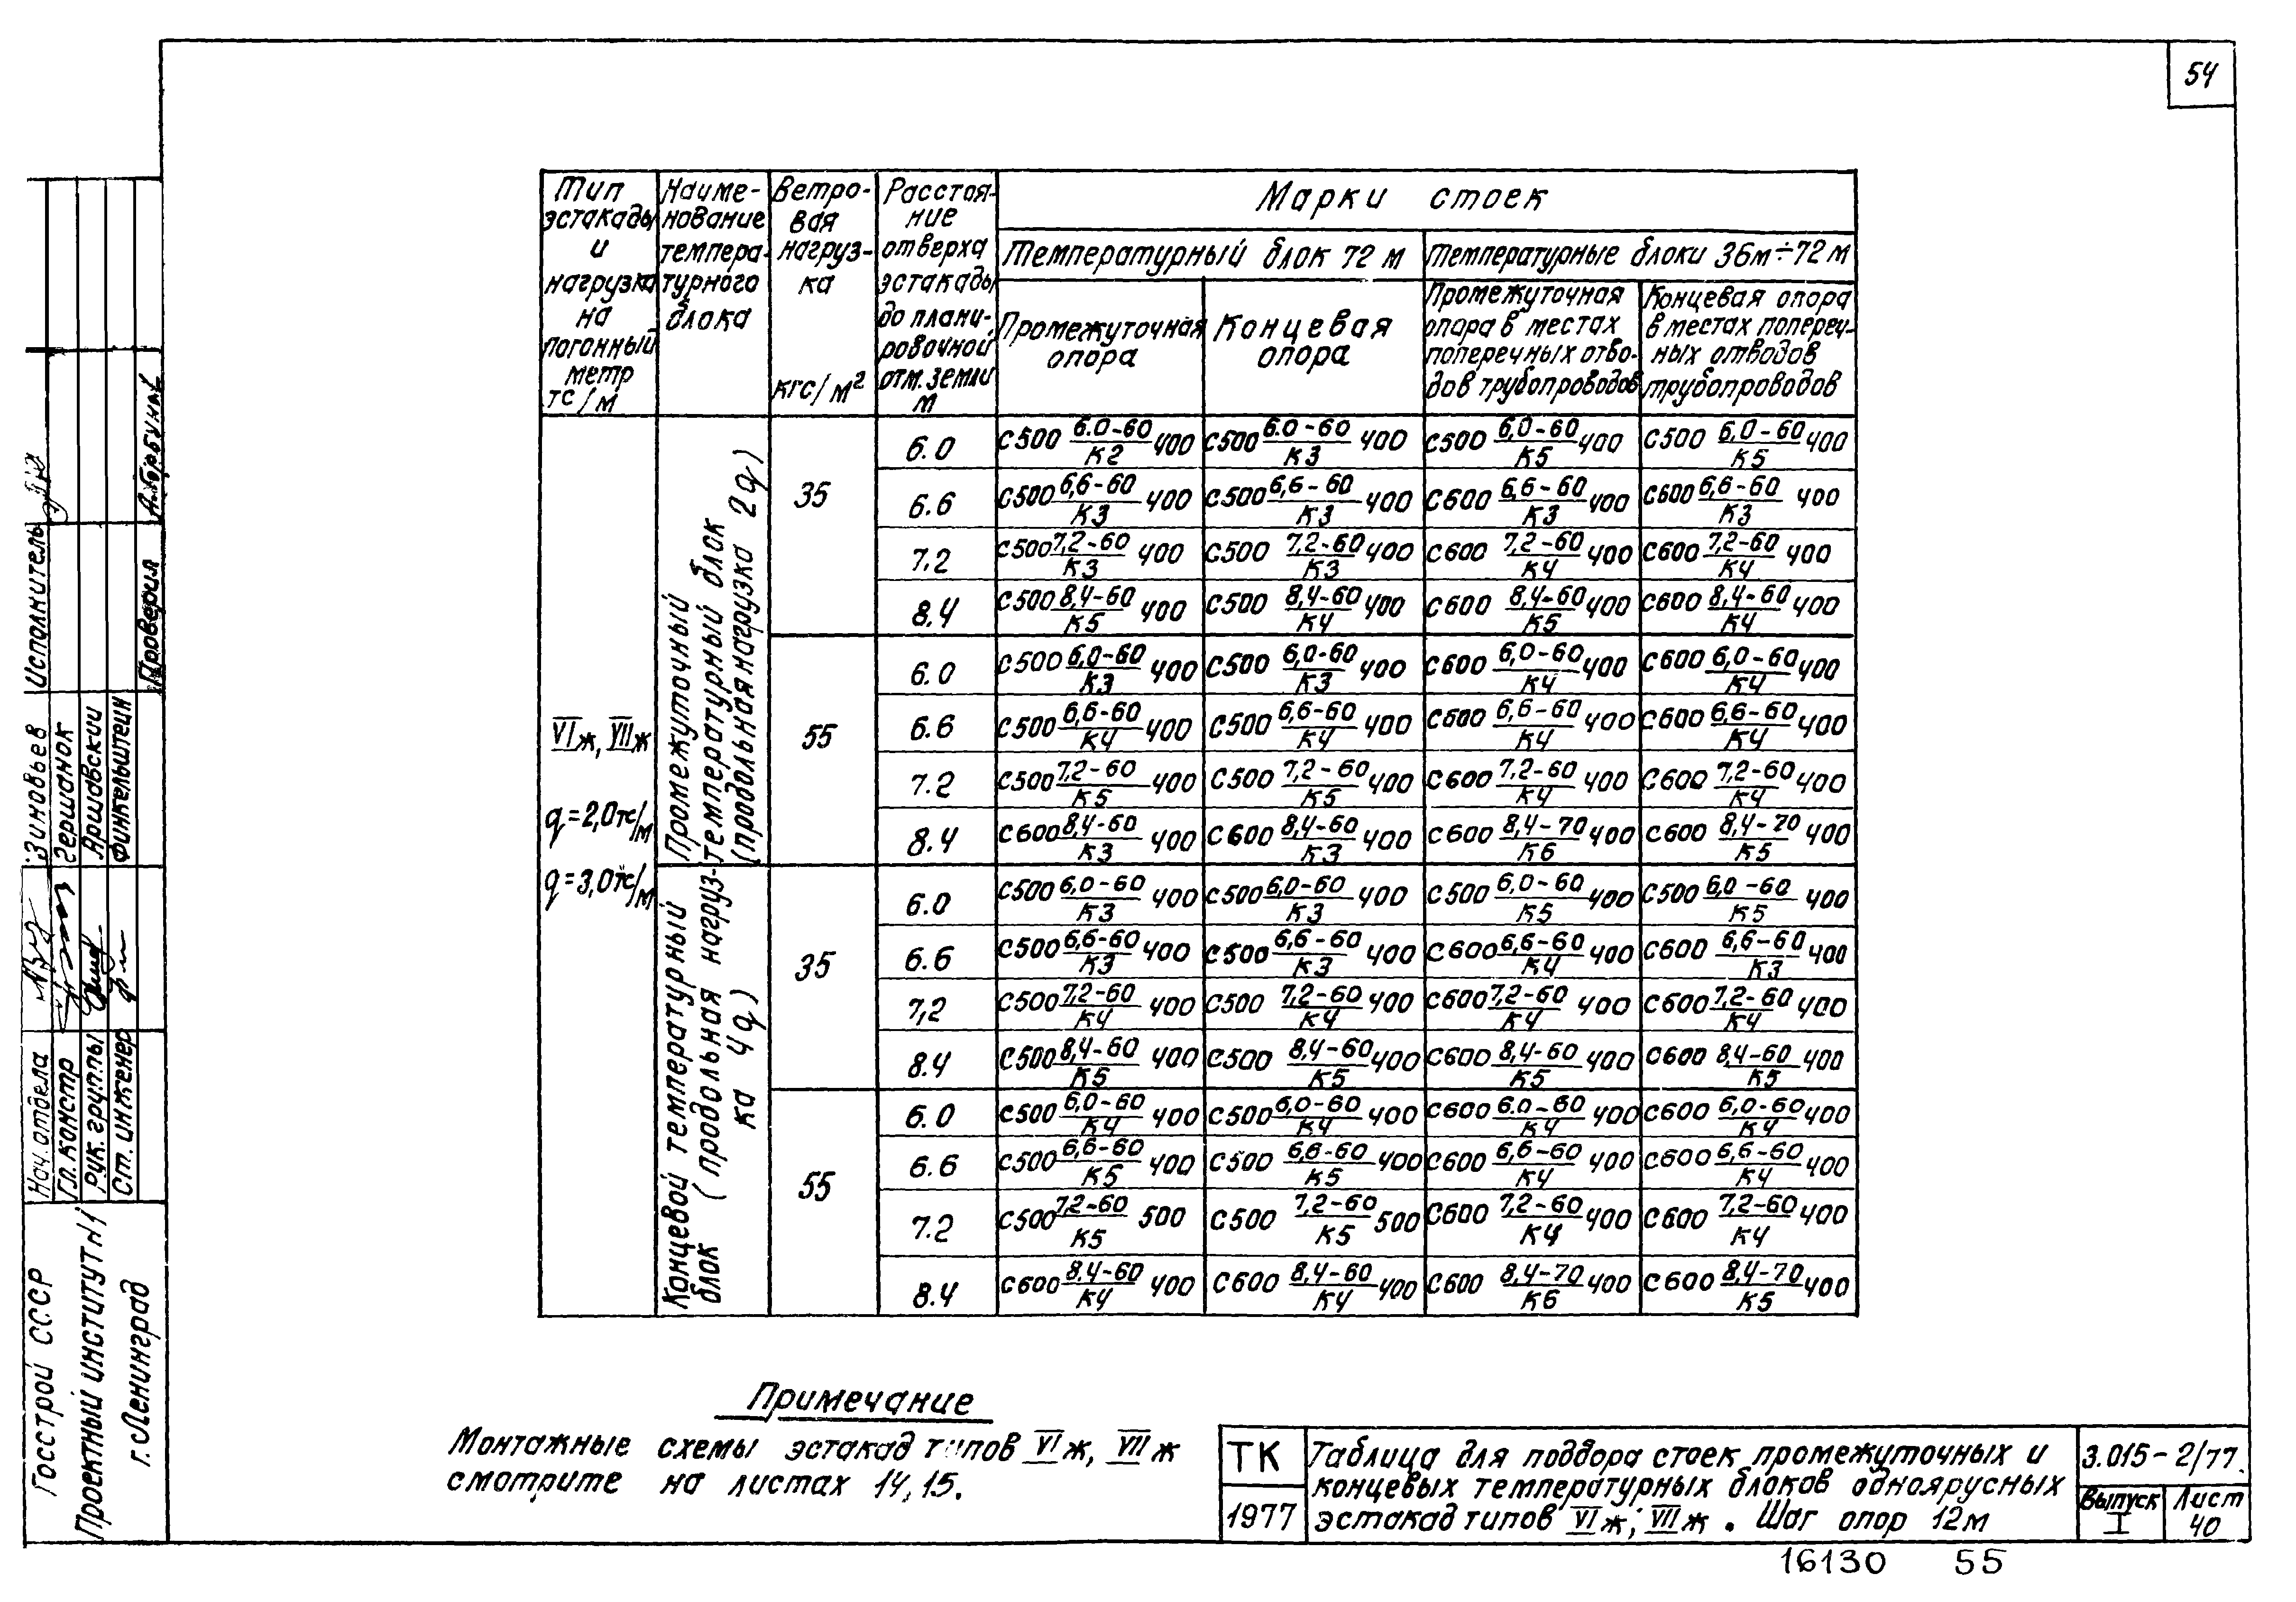 54
Тип эстакады и нагрузка на погонный метр тс/м
Наиме-нование темпера-турного блока
Ветро-вая нагруз-ка кгс/м²
Расстоя-ние отверха эстакады до плани-ровочной отм. земли м
Марки стоек
Температурный блок 72 м
Температурные блоки 36м÷72м
Промежуточная опора
Концевая опора
Промежуточная опора в местах поперечных отво-дов трубопроводов
Концевая опора в местах попереч-ных отводов трубопроводов
VIж, VIIж
q=2,0тс/м
q=3,0тс/м
Промежуточный температурный блок (продольная нагрузка 2q)
35
6.0 С500 6.0-60/К2 400 С500 6.0-60/К3 400 С500 6,0-60/К5 400 С500 6,0-60/К5 400
6.6 С500 6,6-60/К3 400 С500 6,6-60/К3 400 С600 6,6-60/К3 400 С600 6,6-60/К3 400
7,2 С500 7,2-60/К3 400 С500 7,2-60/К3 400 С600 7,2-60/К4 400 С600 7,2-60/К4 400
8.4 С500 8,4-60/К5 400 С500 8,4-60/К4 400 С600 8,4-60/К5 400 С600 8,4-60/К4 400
55
6.0 С500 6,0-60/К3 400 С500 6,0-60/К3 400 С600 6,0-60/К4 400 С600 6,0-60/К4 400
6.6 С500 6,6-60/К4 400 С500 6,6-60/К4 400 С600 6,6-60/К4 400 С600 6,6-60/К4 400
7.2 С500 7,2-60/К5 400 С500 7,2-60/К5 400 С600 7,2-60/К4 400 С600 7,2-60/К4 400
8.4 С600 8,4-60/К3 400 С600 8,4-60/К3 400 С600 8,4-70/К6 400 С600 8,4-70/К5 400
Концевой температурный блок (продольная нагруз-ка 4q)
35
6.0 С500 6,0-60/К3 400 С500 6,0-60/К3 400 С500 6,0-60/К5 400 С500 6,0-60/К5 400
6.6 С500 6,6-60/К3 400 С500 6,6-60/К3 400 С600 6,6-60/К4 400 С600 6,6-60/К3 400
7,2 С500 7,2-60/К4 400 С500 7,2-60/К4 400 С600 7,2-60/К4 400 С600 7,2-60/К4 400
8.4 С500 8,4-60/К5 400 С500 8,4-60/К5 400 С600 8,4-60/К5 400 С600 8,4-60/К5 400
55
6.0 С500 6,0-60/К4 400 С500 6,0-60/К4 400 С600 6.0-60/К4 400 С600 6,0-60/К4 400
6.6 С500 6,6-60/К5 400 С500 6,6-60/К5 400 С600 6,6-60/К4 400 С600 6,6-60/К4 400
7.2 С500 7,2-60/К5 500 С500 7,2-60/К5 500 С600 7,2-60/К4 400 С600 7,2-60/К4 400
8.4 С600 8,4-60/К4 400 С600 8,4-60/К4 400 С600 8,4-70/К6 400 С600 8,4-70/К5 400
Примечание
Монтажные схемы эстакад типов VIж, VIIж
смотрите на листах 14,15.
ТК
1977
Таблица для подбора стоек промежуточных и
концевых температурных блоков одноярусных
эстакад типов VIж; VIIж. Шаг опор 12м
3.015-2/77.
Выпуск I
Лист 40
16130 55
Госстрой СССР
Проектный институт №1
г. Ленинград
Нач. отдела Зиновьев
Гл. констр Гершанок
Рук. группы Аршавский
Ст. инженер Финкельштейн
Исполнитель
Проверил